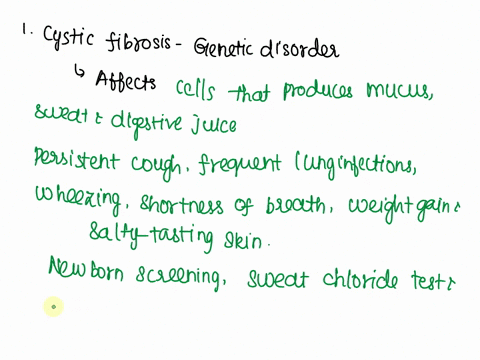 1. Cystic fibrosis - Genetic disorder
↳ Affects cells that produces mucus,
sweat & digestive juice
Persistent cough, frequent lung infections,
wheezing, shortness of breath, weight gain &
salty-tasting skin.
Newborn screening, sweat chloride test &